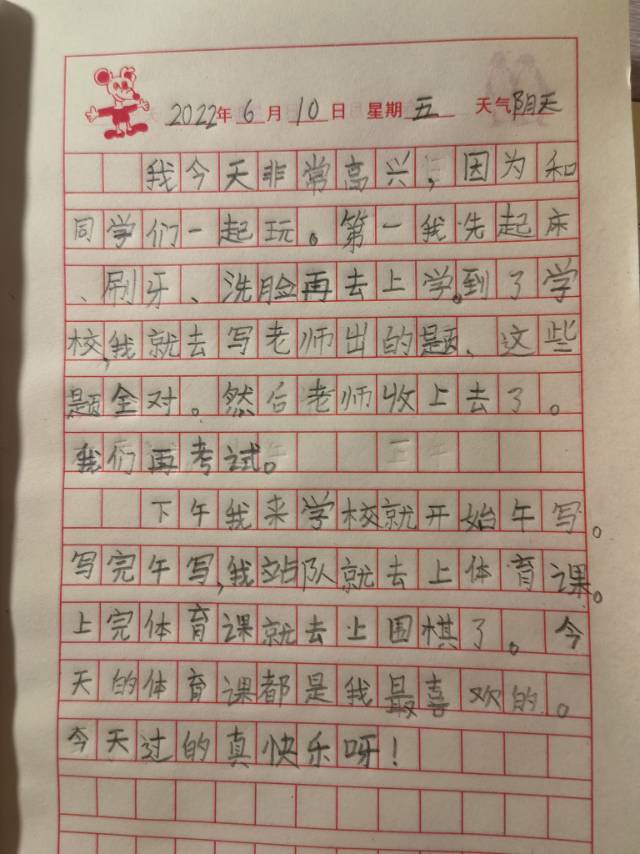 2022年6月10日 星期五 天气阴天
我今天非常高兴，因为和
同学们一起玩。第一我先起床
、刷牙、洗脸再去上学。到了学
校，我就去写老师出的题、这些
题全对。然后老师收上去了。
我们再考试。
下午我来学校就开始午写。
写完午写，我站队就去上体育课。
上完体育课就去上围棋了。今
天的体育课都是我最喜欢的。
今天过的真快乐呀！